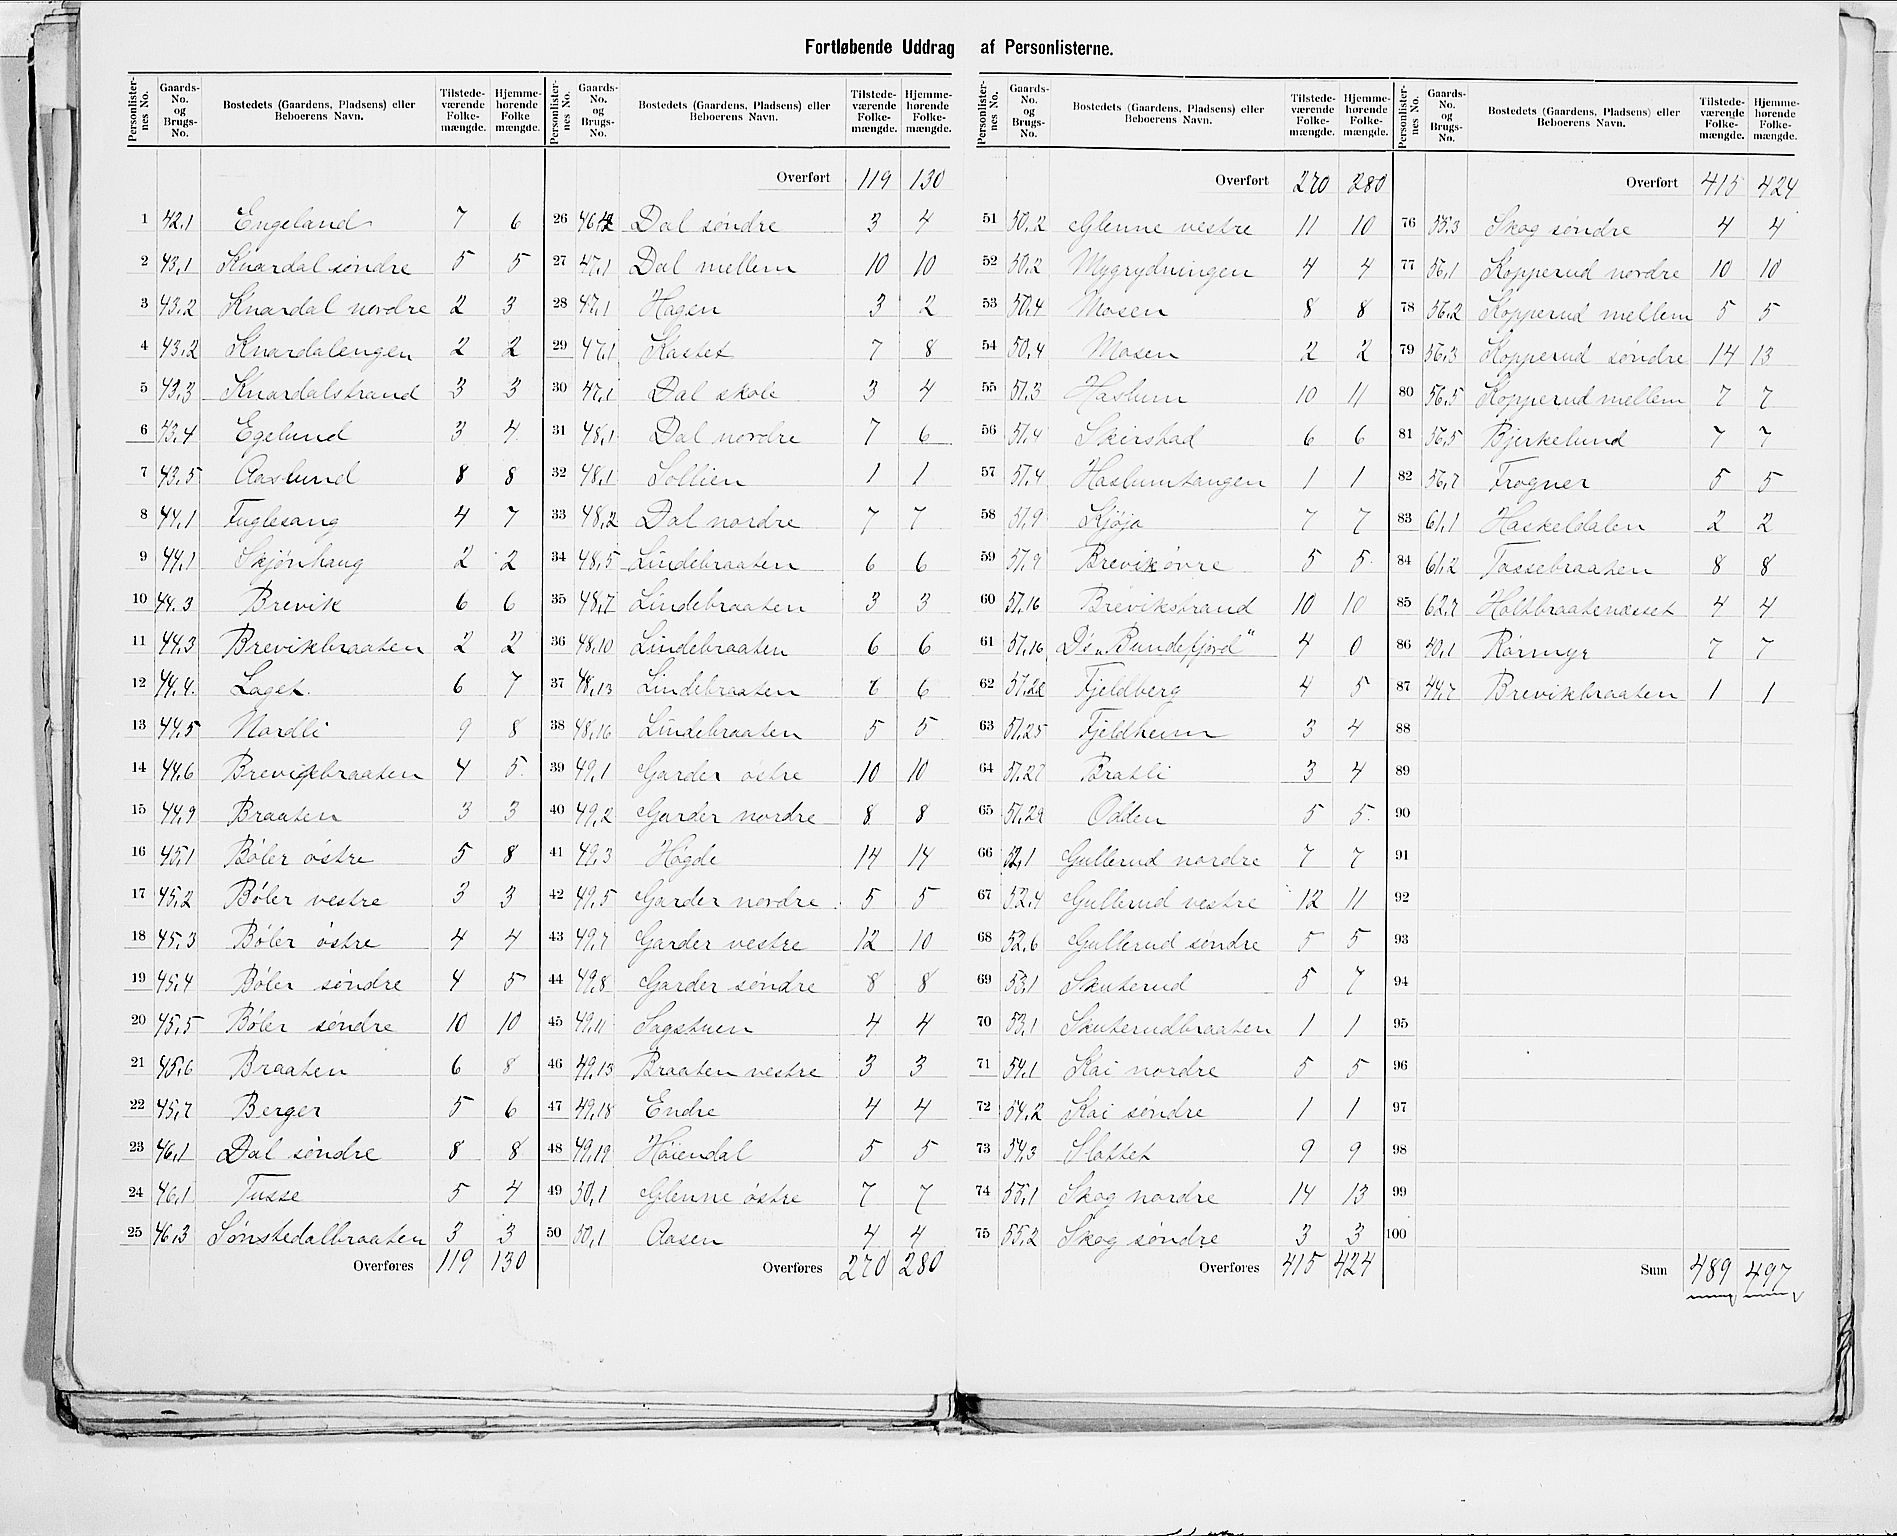 Fortløbende Uddrag af Personlisterne.
Personlisternes No. Gaards-No. og Brugs-No. Bostedets (Gaardens, Pladsens) eller Beboerens Navn. Tilstedeværende Folkemængde. Hjemmehørende Folkemængde.
1 42,1 Engeland 7 6
2 43,1 Knardal søndre 5 5
3 43,2 Knardal nordre 2 3
4 43,2 Knardalengen 2 2
5 43,3 Knardalstrand 3 3
6 43,4 Egelund 3 4
7 43,5 Aaslund 8 8
8 44,1 Fuglesang 4 7
9 44,1 Skjønhaug 2 2
10 44,3 Brevik 6 6
11 44,3 Brevikbraaten 2 2
12 44,4 Laget 6 7
13 44,5 Nordli 9 8
14 44,6 Brevikbraaten 4 5
15 44,9 Braaten 3 3
16 45,1 Bøler østre 5 8
17 45,2 Bøler vestre 3 3
18 45,3 Bøler østre 4 4
19 45,4 Bøler søndre 4 5
20 45,5 Bøler søndre 10 10
21 45,6 Braaten 6 8
22 45,7 Berger 5 6
23 46,1 Dal søndre 8 8
24 46,1 Tusse 5 4
25 46,3 Sønstedalbraaten 3 3
Overføres 119 130
Personlisternes No. Gaards-No. og Brugs-No. Bostedets (Gaardens, Pladsens) eller Beboerens Navn. Tilstedeværende Folkemængde. Hjemmehørende Folkemængde.
Overført 119 130
26 Dal søndre 3 4
27 47,1 Dal mellem 10 10
28 47,1 Hagen 3 2
29 47,1 Kastet 7 8
30 47,1 Dal skole 3 4
31 48,1 Dal nordre 7 6
32 48,1 Sollien 1 1
33 48,2 Dal nordre 7 7
34 48,5 Lindebraaten 6 6
35 48,7 Lindebraaten 3 3
36 48,10 Lindebraaten 6 6
37 48,13 Lindebraaten 6 6
38 48,16 Lindebraaten 5 5
39 49,1 Garder østre 10 10
40 49,2 Garder nordre 8 8
41 49,3 Høgde 14 14
42 49,5 Garder nordre 5 5
43 49,7 Garder vestre 12 10
44 49,8 Garder søndre 8 8
45 49,11 Sagstuen 4 4
46 49,13 Braaten vestre 3 3
47 49,18 Endre 4 4
48 49,19 Høiendal 5 5
49 50,1 Glenne østre 7 7
50 50,1 Aasen 4 4
Overføres 270 280
Personlisternes No. Gaards-No. og Brugs-No. Bostedets (Gaardens, Pladsens) eller Beboerens Navn. Tilstedeværende Folkemængde. Hjemmehørende Folkemængde.
Overført 270 280
51 50,2 Glenne vestre 11 10
52 50,2 Mygrydningen 4 4
53 50,4 Mosen 8 8
54 50,4 Mosen 2 2
55 51,3 Haslum 10 11
56 51,4 Skirstad 6 6
57 51,4 Haslumtangen 1 1
58 51,9 Kjøja 7 7
59 51,9 Brevik øvre 5 5
60 51,16 Brevikstrand 10 10
61 51,16 D/s „Bundefjord" 4 0
62 51,22 Fjeldberg 4 5
63 51,25 Fjeldheim 3 4
64 51,27 Bratli 3 4
65 51,29 Odden 5 5
66 52,1 Gullerud nordre 7 7
67 52,4 Gullerud vestre 12 11
68 52,6 Gullerud søndre 5 5
69 53,1 Skuterud 5 7
70 53,1 Skuterudbraaten 1 1
71 54,1 Kai nordre 5 5
72 54,2 Kai søndre 1 1
73 54,3 Slottet 9 9
74 55,1 Skog nordre 14 13
75 55,2 Skog søndre 3 3
Overføres 415 424
Personlisternes No. Gaards-No. og Brugs-No. Bostedets (Gaardens, Pladsens) eller Beboerens Navn. Tilstedeværende Folkemængde. Hjemmehørende Folkemængde.
Overført 415 424
76 55,3 Skog søndre 4 4
77 56,1 Kopperud nordre 10 10
78 56,2 Kopperud mellem 5 5
79 56,3 Kopperud søndre 14 13
80 56,5 Kopperud mellem 7 7
81 56,5 Bjerkelund 7 7
82 56,7 Frogner 5 5
83 61,1 Haskeldalen 2 2
84 61,2 Tassebraaten 8 8
85 62,7 Holtbraatenæsset 4 4
86 40,1 Rørmyr 7 7
87 44,7 Brevikbraaten 1 1
88
89
90
91
92
93
94
95
96
97
98
99
100
Sum 489 497